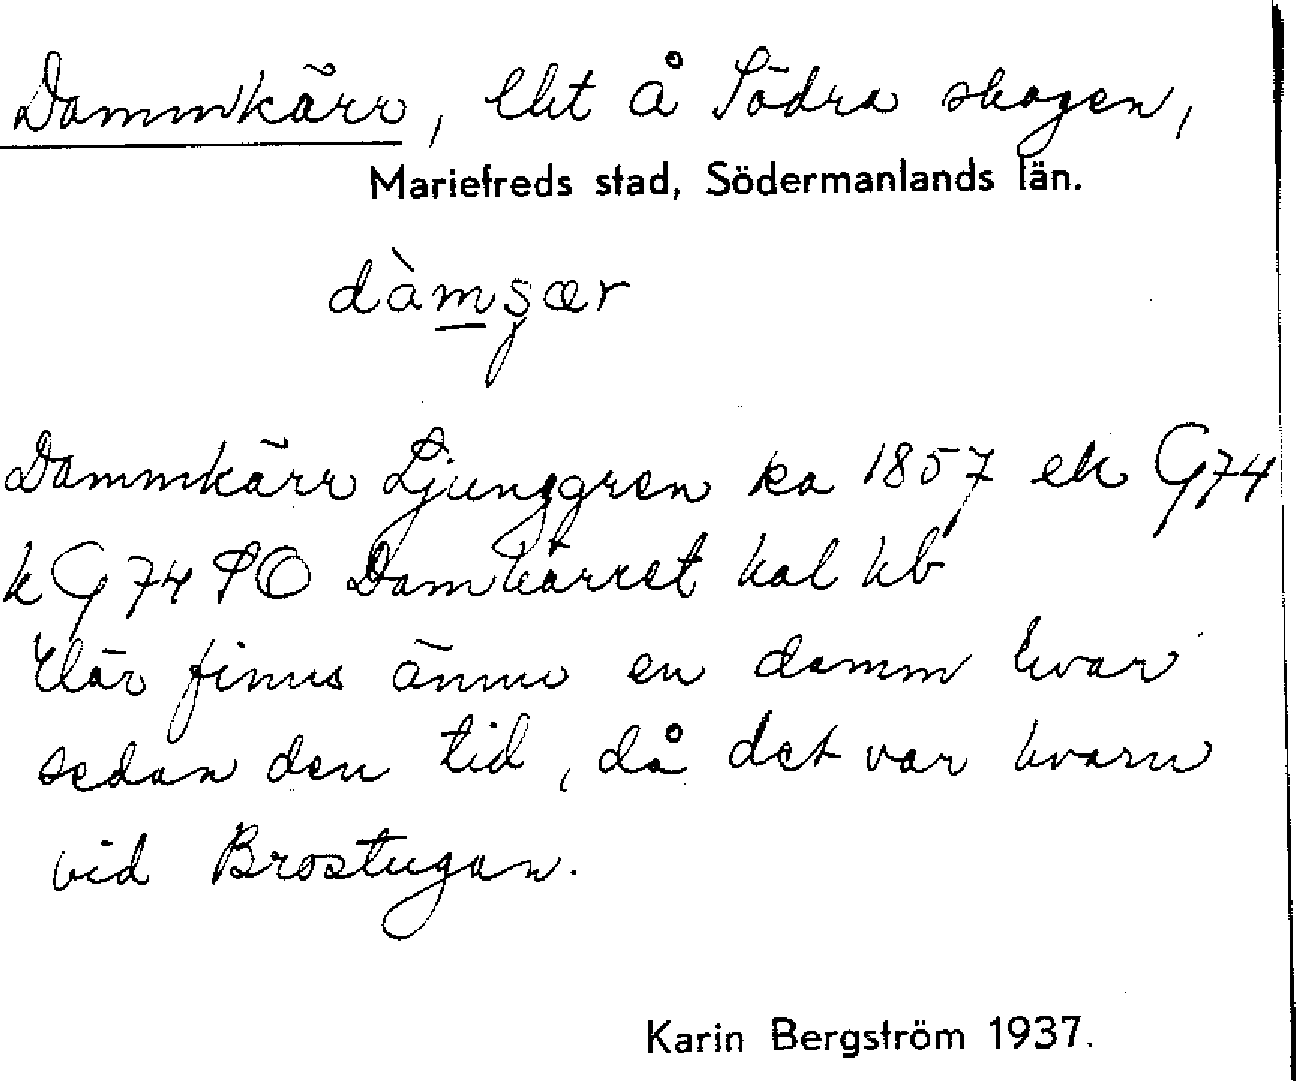 Dammkärr, lht å Södra skogen,
Mariefreds stad, Södermanlands län.
dàmʂær
Dammkärr Ljunggren ka 1857 ek G74
k G74 SO Damkärret hal hb
Här finns ännu en damm kvar
sedan den tid, då det var kvarn
vid Brostugan.
Karin Bergström 1937.